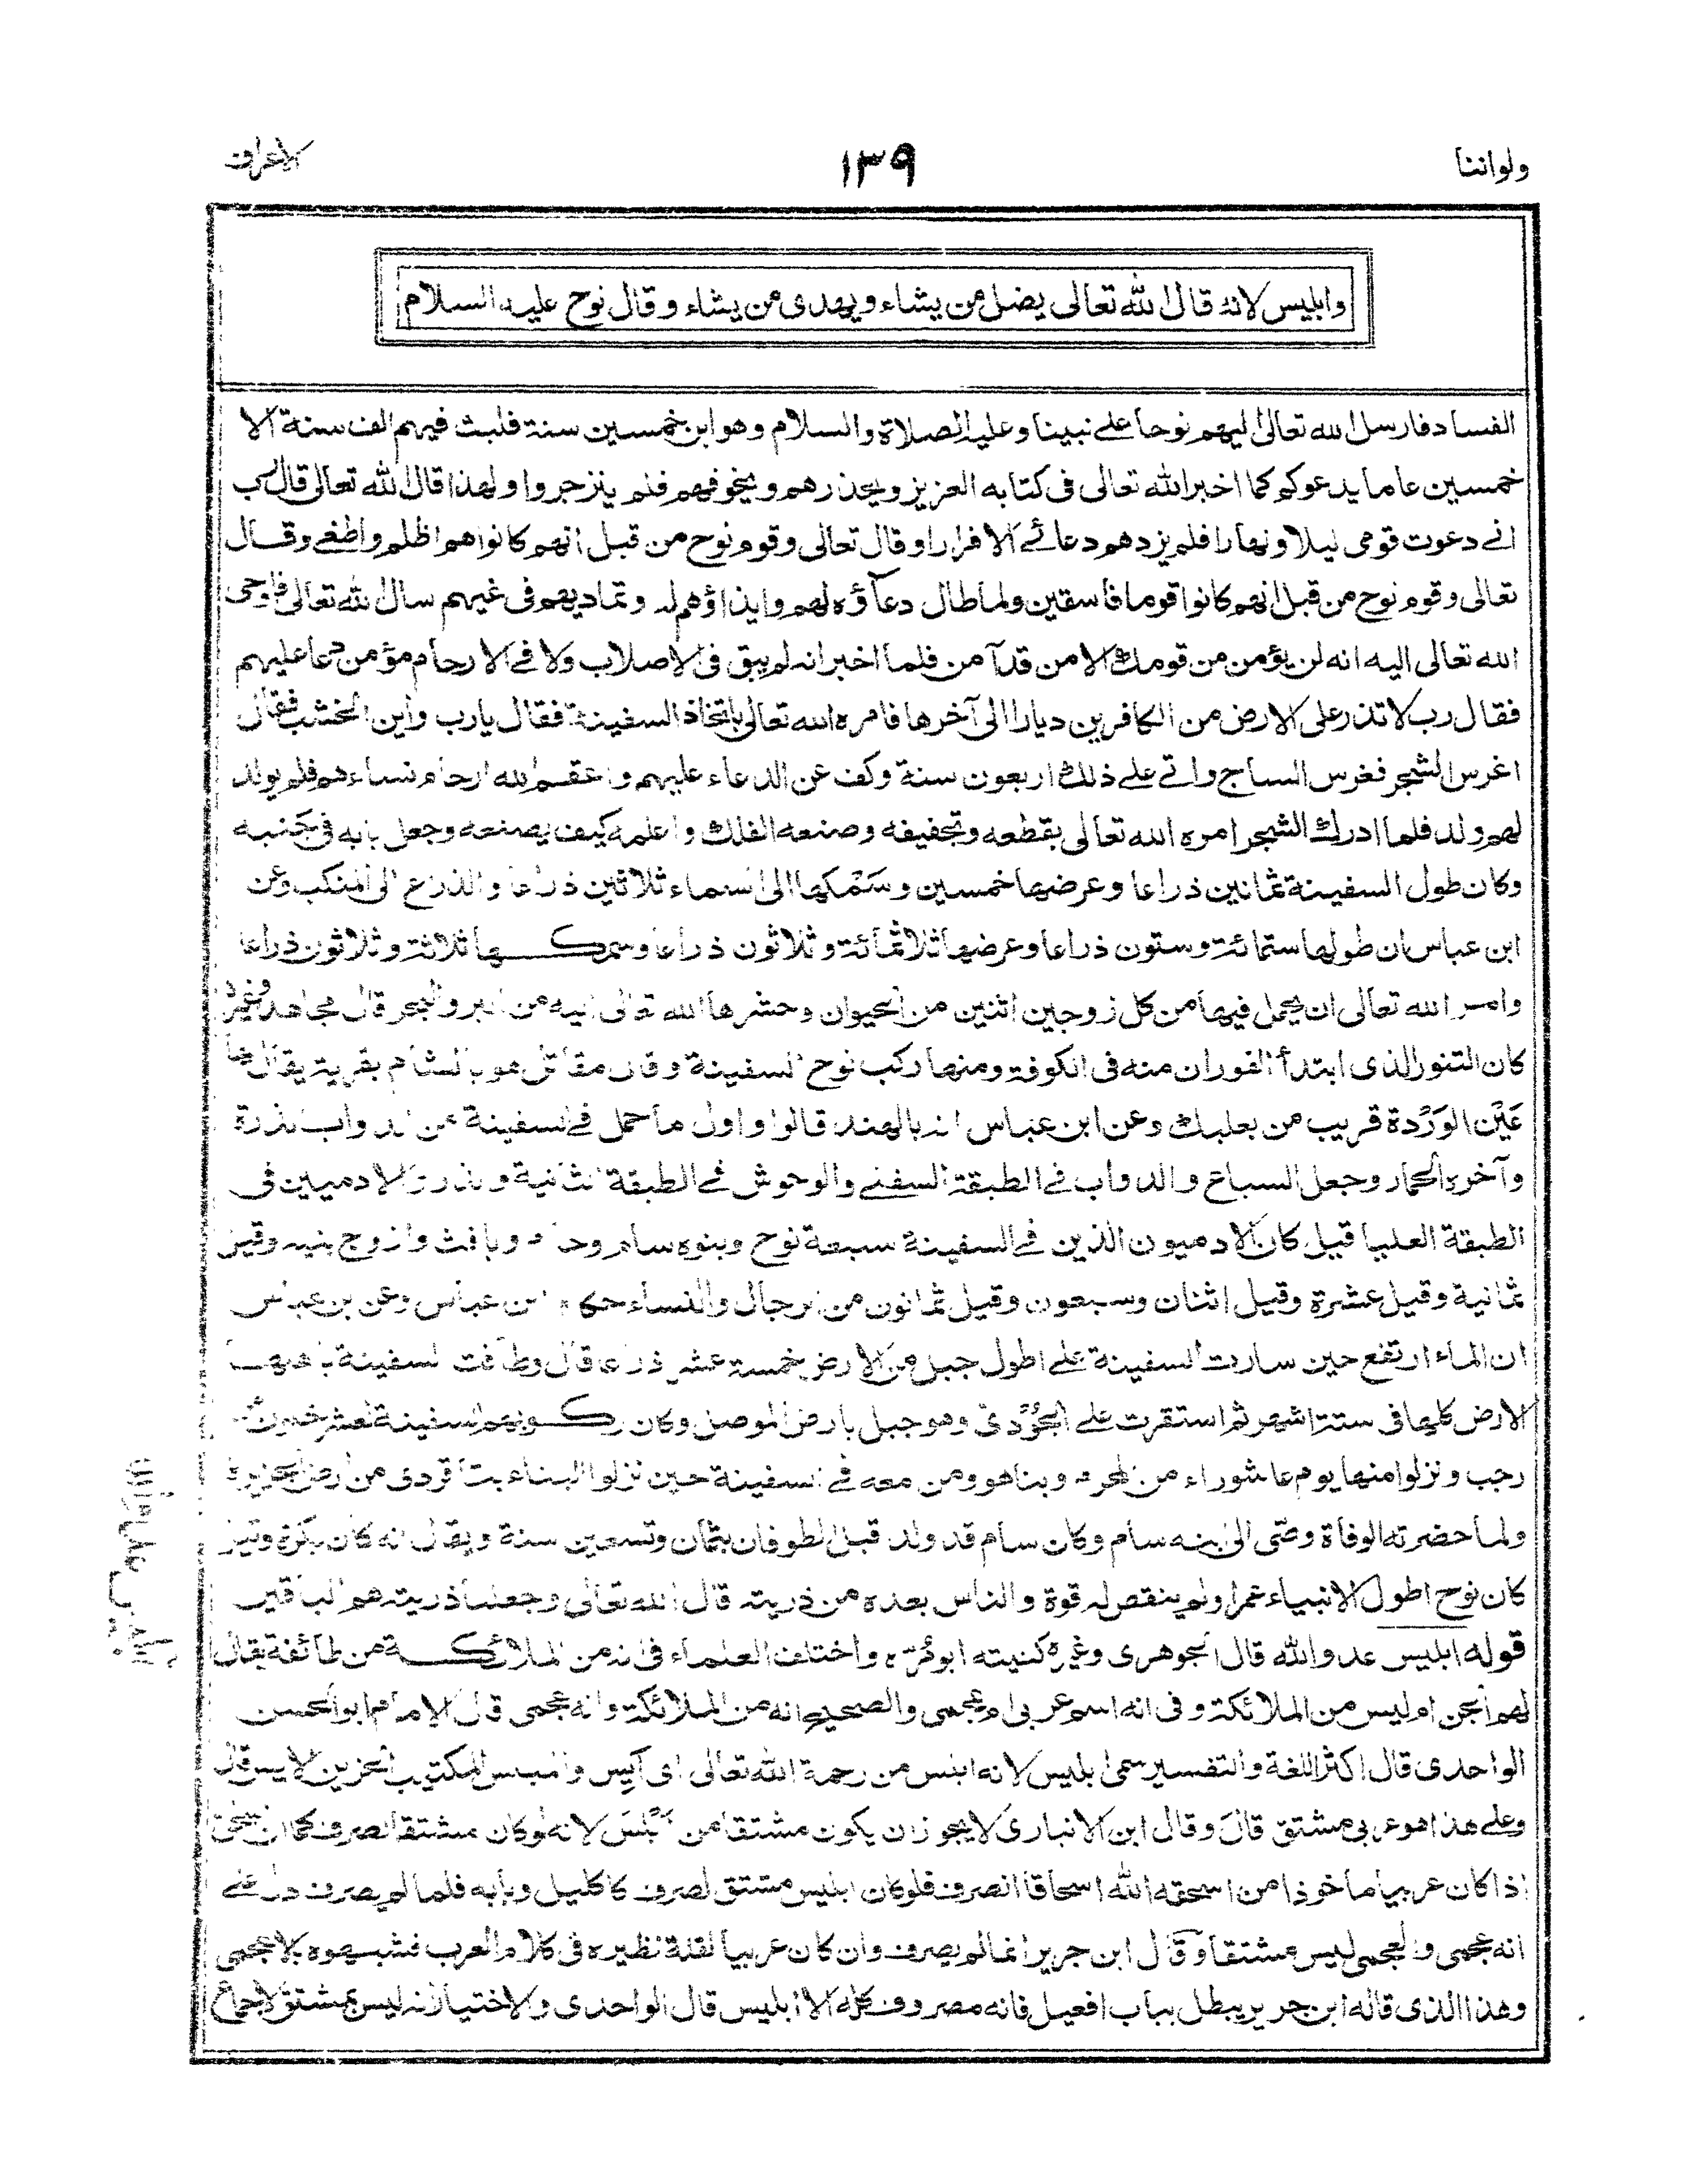 ولواننا
١٣٩
الاعراف
وابليس لانه قال الله تعالى يضل من يشاء ويهدى من يشاء وقال نوح عليه السلام
الفساد فارسل الله تعالى اليهم نوحا على نبينا وعليه الصلاة والسلام وهو ابن خمسين سنة فلبث فيهم الف سنة الا
خمسين عاما يدعوكم كما اخبر الله تعالى فى كتابه العزيز ويحذرهم ويخوفهم فلم ينزجروا ولهذا قال الله تعالى قال رب
انى دعوت قومى ليلا ونهارا فلم يزدهم دعائى الا فرارا وقال تعالى وقوم نوح من قبل انهم كانوا هم اظلم واطغى وقال
تعالى وقوم نوح من قبل انهم كانوا قوما فاسقين ولما طال دعاؤه لهم وايذاؤهم له وتماديهم فى غيهم سال الله تعالى فاوحى
الله تعالى اليه انه لن يؤمن من قومك الا من قد آمن فلما اخبر انه لم يبق فى الاصلاب ولا فى الارحام مؤمن دعا عليهم
فقال رب لا تذر على الارض من الكافرين ديارا الى آخرها فامره الله تعالى باتخاذ السفينة فقال يارب واين الخشب فقال
اغرس الشجر فغرس الساج واتى على ذلك اربعون سنة وكف عن الدعاء عليهم واعقم الله ارحام نساءهم فلم يولد
لهم ولد فلما ادرك الشجر امره الله تعالى بقطعه وتجفيفه وصنعه الفلك واعلمه كيف يصنعه وجعل بابه فى جنبه
وكان طول السفينة ثمانين ذراعا وعرضها خمسين وسمكها الى السماء ثلاثين ذراعا والذراع الى المنكب وعن
ابن عباس ان طولها ستمائة وستون ذراعا وعرضها ثلاثمائة وثلاثون ذراعا وسمكها ثلاثة وثلاثون ذراعا
وامر الله تعالى ان يحمل فيها من كل زوجين اثنين من الحيوان وحشرها الله تعالى اليه من البر والبحر قال مجاهد وغيره
كان التنور الذى ابتدأ الفوران منه فى الكوفة ومنها ركب نوح السفينة وقال مقاتل هو بالشام بقرية يقال لها
عَيْن الوَرْدة قريب من بعلبك وعن ابن عباس انه بالهند قالوا واول ما حمل فى السفينة من الدواب الذرة
وآخره الحمار وجعل السباع والدواب فى الطبقة السفلى والوحوش فى الطبقة الثانية والذر والادميين فى
الطبقة العليا قيل كان الادميون الذين فى السفينة سبعة نوح وبنوه سام وحام ويافث وازوج بنيه وقيل
ثمانية وقيل عشرة وقيل اثنان وسبعون وقيل ثمانون من الرجال والنساء حكاه ابن عباس وعن ابن عباس
ان الماء ارتفع حين سارت السفينة على اطول جبل من الارض خمسة عشر ذراعا قال وطافت السفينة باهلها
الارض كلها فى ستة اشهر ثم استقرت على الجُوْدىّ وهو جبل بارض الموصل وكان ركوبهم السفينة لعشر خلون من
رجب ونزلوا منها يوم عاشوراء من المحرم وبنا هو ومن معه فى السفينة حين نزلوا البناء بت قردى من ارض الجزيرة
ولما حضرته الوفاة وصّى الى ابنه سام وكان سام قد ولد قبل الطوفان بثمان وتسعين سنة ويقال انه كان بكره وقيل
كان نوح اطول الانبياء عمرا ولم ينقص له قوة والناس بعده من ذريته قال الله تعالى وجعلنا ذريته هم الباقين
قوله ابليس عدو الله قال الجوهرى وغيره كنيته ابو مُرّه واختلف العلماء فى انه من الملائكة من طائفة يقال
لهم الجن ام ليس من الملائكة وفى انه اسم عربى ام عجمى والصحيح انه من الملائكة وانه عجمى قال الامام ابوالحسن
الواحدى قال اكثر اللغة والتفسير سمى ابليس لانه ابلس من رحمة الله تعالى اى آيس والمبلس المكتيب الحزين الايس قال
وعلى هذا هو عربى مشتق قال وقال ابن الانبارى لا يجوز ان يكون مشتقا من ابْلَسَ لانه لو كان مشتقا لصرف كما ان اسحق
اذا كان عربيا ماخوذا من اسحقه الله اسحاقا انصرف فلو كان ابليس مشتق لصرف كاكليل وبابه فلما لم يصرف دل على
انه عجمى والعجمى ليس مشتقا وقال ابن جرير انما لم يصرف وان كان عربيا لقلة نظيره فى كلام العرب فشبهوه بالاعجمى
وهذا الذى قاله ابن جرير يبطل بباب افعيل فانه مصروف كله الا ابليس قال الواحدى والاختيار انه ليس بمشتق لاجماع